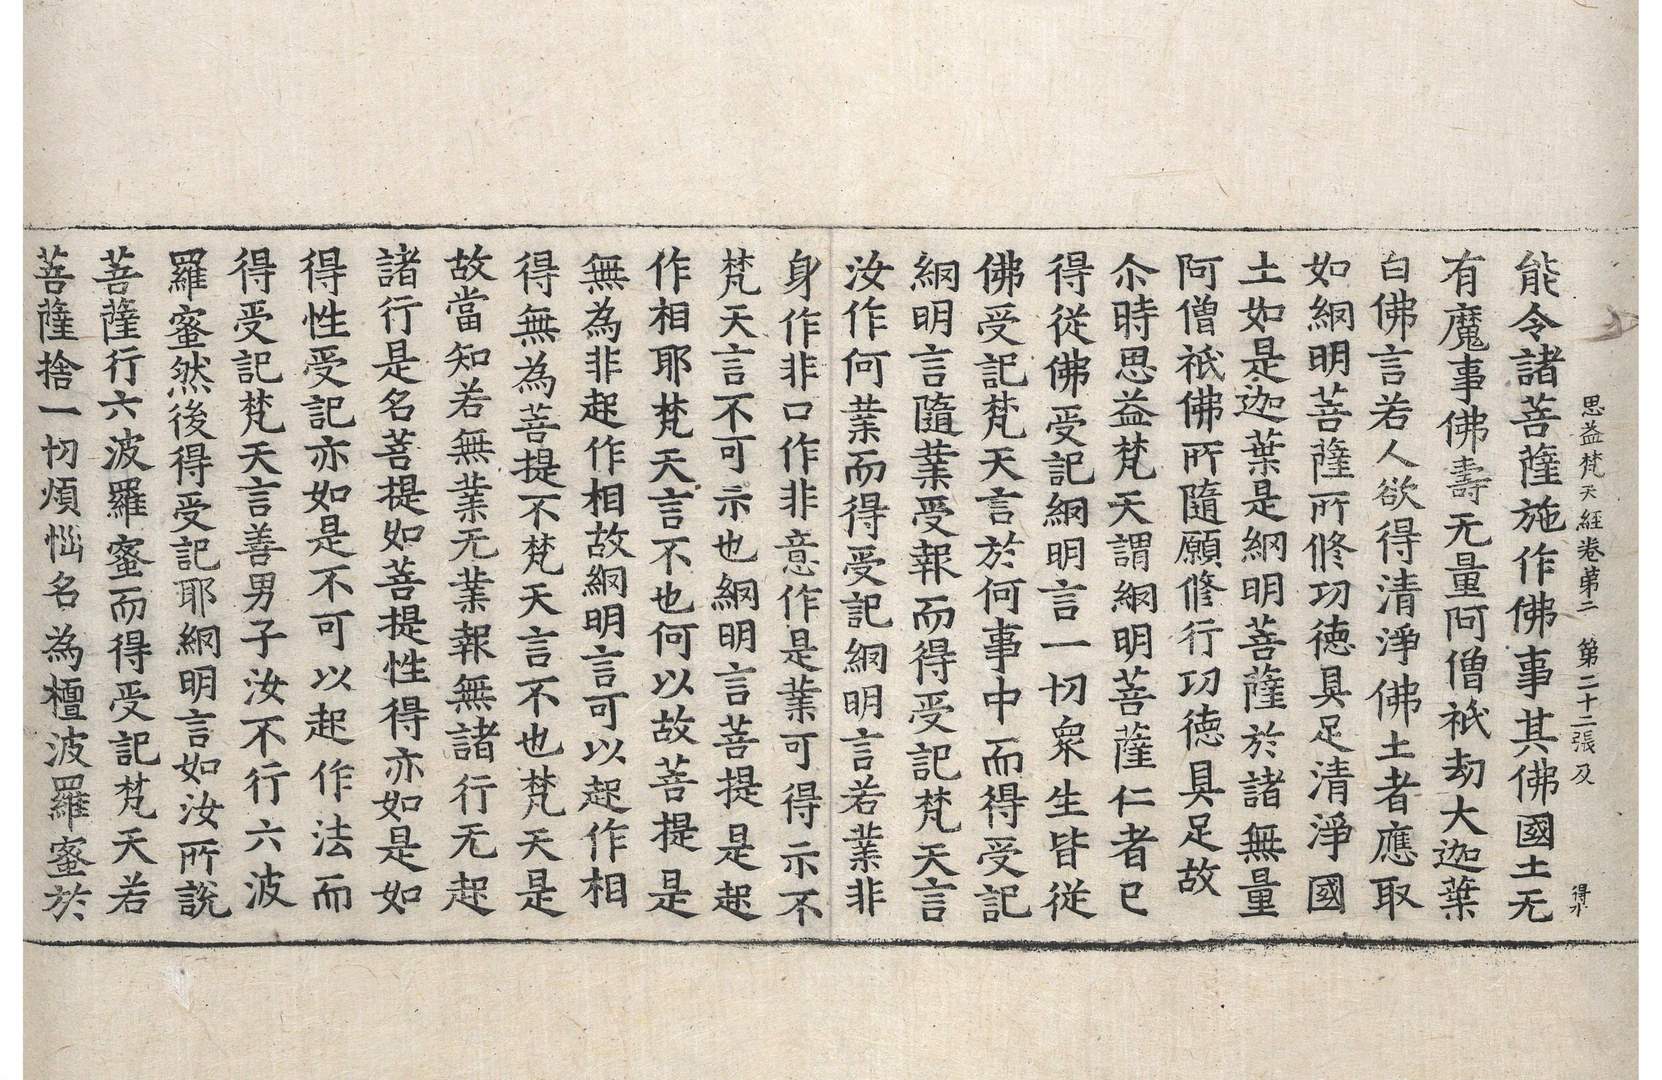 思益梵天經卷第二　第二十二張　及　得
能令諸菩薩施作佛事其佛國土无
有魔事佛壽无量阿僧祇劫大迦葉
白佛言若人欲得清淨佛土者應取
如網明菩薩所修功德具足清淨國
土如是迦葉是網明菩薩於諸無量
阿僧祇佛所隨願修行功德具足故
尒時思益梵天謂網明菩薩仁者已
得從佛受記網明言一切衆生皆從
佛受記梵天言於何事中而得受記
網明言隨業受報而得受記梵天言
汝作何業而得受記網明言若業非
身作非口作非意作是業可得示不
梵天言不可示也網明言菩提是起
作相耶梵天言不也何以故菩提是
無為非起作相故網明言可以起作相
得無為菩提不梵天言不也梵天是
故當知若無業无業報無諸行无起
諸行是名菩提如菩提性得亦如是如
得性受記亦如是不可以起作法而
得受記梵天言善男子汝不行六波
羅蜜然後得受記耶網明言如汝所說
菩薩行六波羅蜜而得受記梵天若
菩薩捨一切煩惱名為檀波羅蜜於